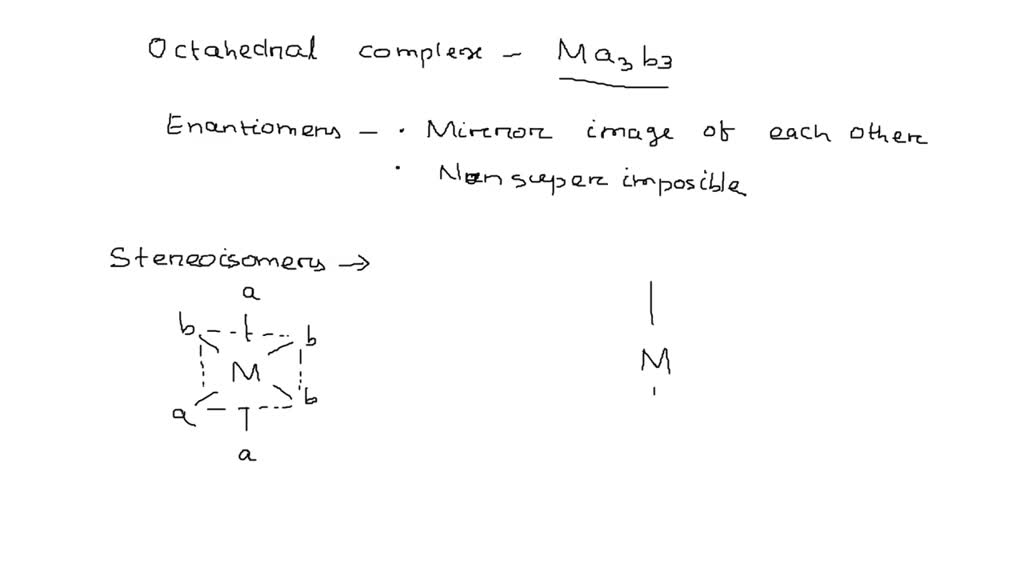 Octahedral complex - Ma3b3
Enantiomers - · Mirror image of each other
· Non super imposible
Stereoisomers →
a
b b
M M
a b
a